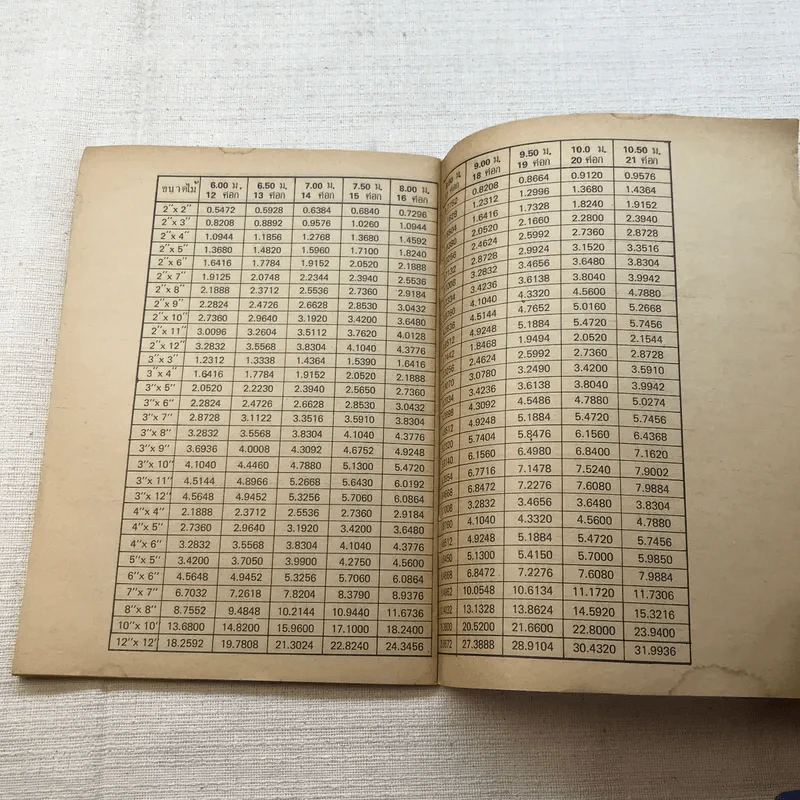 ขนาดไม้ 6.00 ม. 6.50 ม. 7.00 ม. 7.50 ม. 8.00 ม.
12 ศอก 13 ศอก 14 ศอก 15 ศอก 16 ศอก
2"x 2" 0.5472 0.5928 0.6384 0.6840 0.7296
2"x 3" 0.8208 0.8892 0.9576 1.0260 1.0944
2"x 4" 1.0944 1.1856 1.2768 1.3680 1.4592
2"x 5" 1.3680 1.4820 1.5960 1.7100 1.8240
2"x 6" 1.6416 1.7784 1.9152 2.0520 2.1888
2"x 7" 1.9125 2.0748 2.2344 2.3940 2.5536
2"x 8" 2.1888 2.3712 2.5536 2.7360 2.9184
2"x 9" 2.2824 2.4726 2.6628 2.8530 3.0432
2"x 10" 2.7360 2.9640 3.1920 3.4200 3.6480
2"x 11" 3.0096 3.2604 3.5112 3.7620 4.0128
2"x 12" 3.2832 3.5568 3.8304 4.1040 4.3776
3"x 3" 1.2312 1.3338 1.4364 1.5390 1.6416
3"x 4" 1.6416 1.7784 1.9152 2.0520 2.1888
3"x 5" 2.0520 2.2230 2.3940 2.5650 2.7360
3"x 6" 2.2824 2.4726 2.6628 2.8530 3.0432
3"x 7" 2.8728 3.1122 3.3516 3.5910 3.8304
3"x 8" 3.2832 3.5568 3.8304 4.1040 4.3776
3"x 9" 3.6936 4.0008 4.3092 4.6752 4.9248
3"x 10" 4.1040 4.4460 4.7880 5.1300 5.4720
3"x 11" 4.5144 4.8966 5.2668 5.6430 6.0192
3"x 12" 4.5648 4.9452 5.3256 5.7060 6.0864
4"x 4" 2.1888 2.3712 2.5536 2.7360 2.9184
4"x 5" 2.7360 2.9640 3.1920 3.4200 3.6480
4"x 6" 3.2832 3.5568 3.8304 4.1040 4.3776
5"x 5" 3.4200 3.7050 3.9900 4.2750 4.5600
6"x 6" 4.5648 4.9452 5.3256 5.7060 6.0864
7"x 7" 6.7032 7.2618 7.8204 8.3790 8.9376
8"x 8" 8.7552 9.4848 10.2144 10.9440 11.6736
10"x 10" 13.6800 14.8200 15.9600 17.1000 18.2400
12"x 12" 18.2592 19.7808 21.3024 22.8240 24.3456
9.00 ม. 9.50 ม. 10.0 ม. 10.50 ม.
18 ศอก 19 ศอก 20 ศอก 21 ศอก
0.8208 0.8664 0.9120 0.9576
1.2312 1.2996 1.3680 1.4364
1.6416 1.7328 1.8240 1.9152
2.0520 2.1660 2.2800 2.3940
2.4624 2.5992 2.7360 2.8728
2.8728 2.9924 3.1520 3.3516
3.2832 3.4656 3.6480 3.8304
3.4236 3.6138 3.8040 3.9942
4.1040 4.3320 4.5600 4.7880
4.5144 4.7652 5.0160 5.2668
4.9248 5.1884 5.4720 5.7456
1.8468 1.9494 2.0520 2.1544
2.4624 2.5992 2.7360 2.8728
3.0780 3.2490 3.4200 3.5910
3.4236 3.6138 3.8040 3.9942
4.3092 4.5486 4.7880 5.0274
4.9248 5.1884 5.4720 5.7456
5.7404 5.8476 6.1560 6.4368
6.1560 6.4980 6.8400 7.1620
6.7716 7.1478 7.5240 7.9002
6.8472 7.2276 7.6080 7.9884
3.2832 3.4656 3.6480 3.8304
4.1040 4.3320 4.5600 4.7880
4.9248 5.1884 5.4720 5.7456
5.1300 5.4150 5.7000 5.9850
6.8472 7.2276 7.6080 7.9884
10.0548 10.6134 11.1720 11.7306
13.1328 13.8624 14.5920 15.3216
20.5200 21.6600 22.8000 23.9400
27.3888 28.9104 30.4320 31.9936